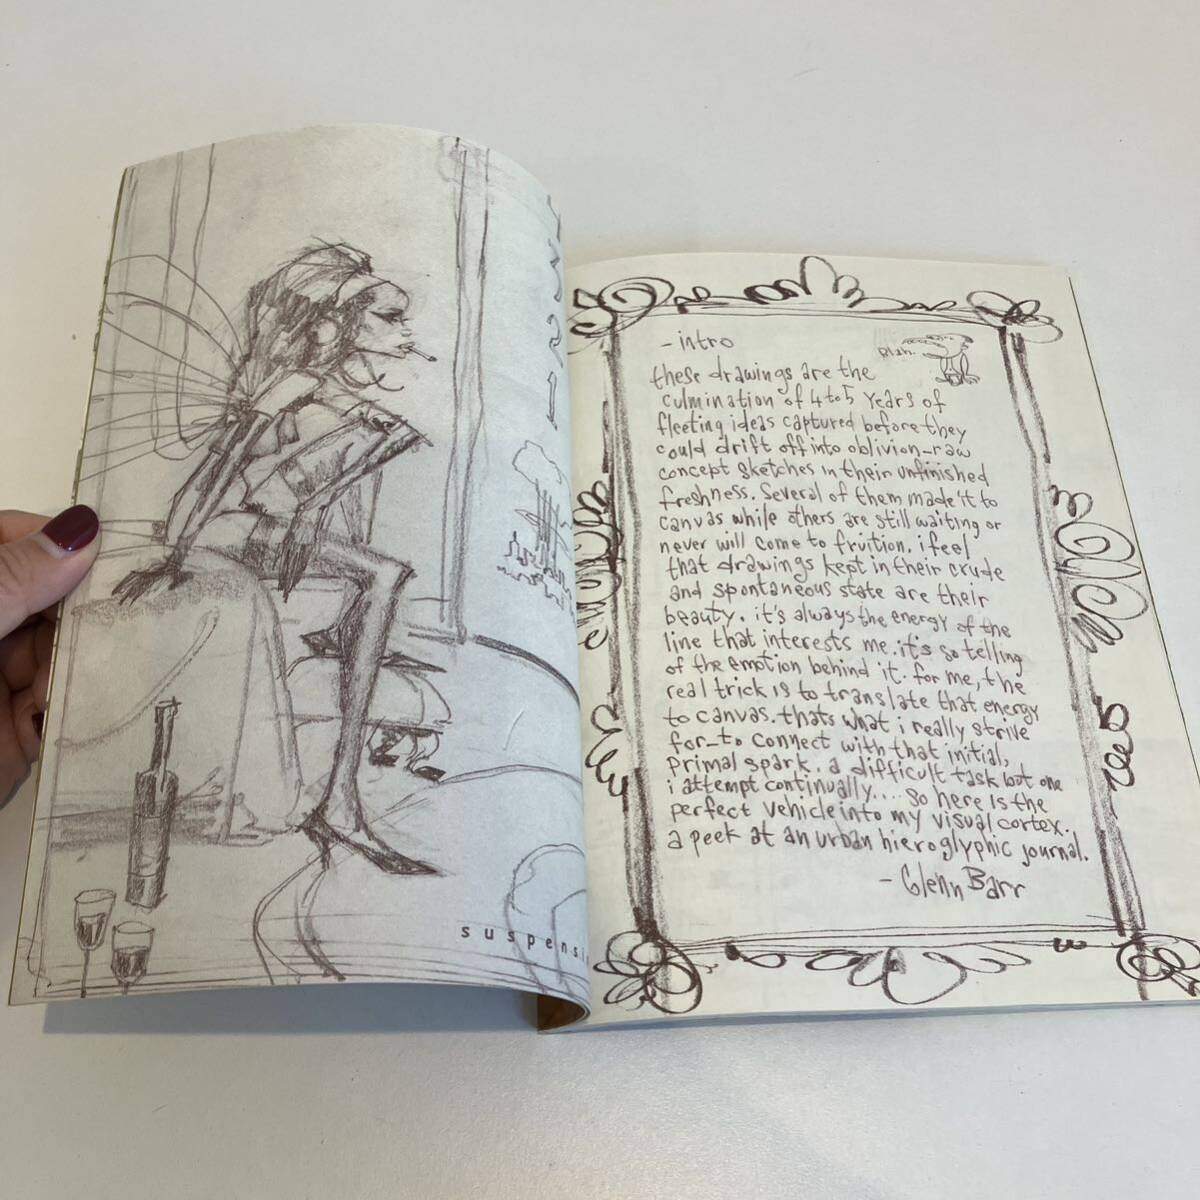 suspensi
- intro
Blah.
these drawings are the
culmination of 4 to 5 years of
fleeting ideas captured before they
could drift off into oblivion-raw
concept sketches in their unfinished
freshness. Several of them made it to
canvas while others are still waiting or
never will come to fruition. i feel
that drawings kept in their crude
and spontaneous state are their
beauty. it's always the energy of the
line that interests me. it's so telling
of the emotion behind it. for me, the
real trick is to translate that energy
to canvas. thats what i really strive
for_to connect with that initial,
primal spark. a difficult task but one
i attempt continually.... so here is the
perfect vehicle into my visual cortex.
a peek at an urban hieroglyphic journal.
- Glenn Barr